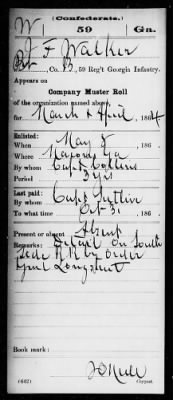 W
(Confederate.)
59
Ga.
J F Walker
Pvt, Co. B, 59 Reg't Georgia Infantry.
Appears on
Company Muster Roll
of the organization named above,
for March & April, 1864
Enlisted:
When May 8, 186 .
Where Macon Ga
By whom Capt Collins
Period 3 yrs
Last paid:
By whom Capt
To what time Oct 31, 186 .
Present or absent Absent
Remarks: Detail on South
Side R R by order
Genl Longstreet
Book mark:
(642)
Copyist.